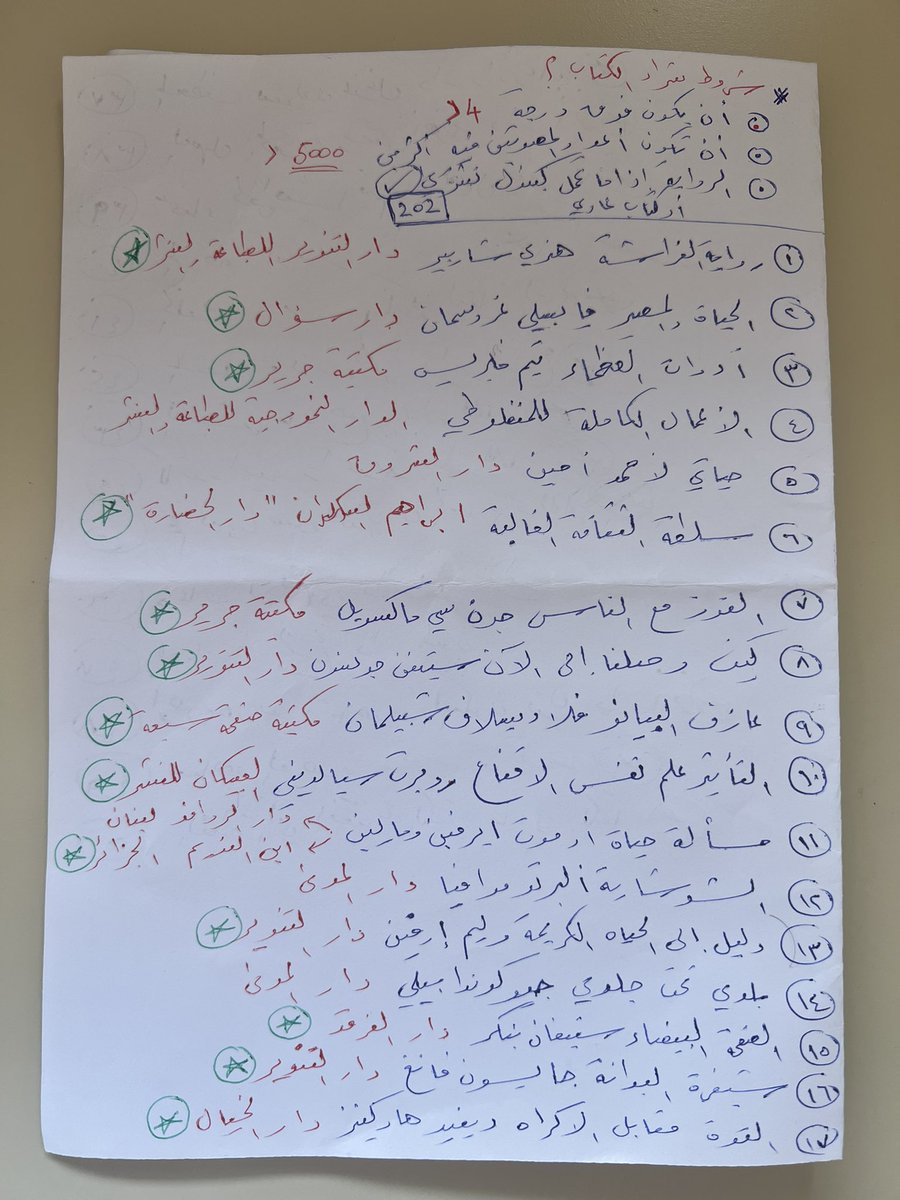 * شروط شراء الكتاب؟
أن يكون فوق درجة 4 <
أن تكون أعداد المصوتين فيه أكثر من 5000 <
الرواية إذا ما عمل كبندل نشتري ✓
أو كتاب عادي
202
١ رواية الفراشة هنري شاريير دار التنوير للطباعة والنشر
٢ الحياة والمصير فاسيلي غروسمان دار سؤال
٣ أدوات العظماء تيم فيريس مكتبة جرير
٤ الأعمال الكاملة للمنفلوطي الدار النموذجية للطباعة والنشر
٥ حياتي لأحمد أمين دار الشروق
٦ سلطة الثقافة الغالبة ابراهيم السكران "دار الحضارة"
٧ الفوز مع الناس جون سي ماكسويل مكتبة جرير
٨ كيف وصلنا إلى الآن ستيفن جونسون دار التنوير
٩ عازف البيانو فلاديسلاف شبيلمان مكتبة صفحة سبعة
١٠ التأثير علم نفس الاقناع روبرت سيالديني العبيكان للنشر
١١ مسألة حياة أو موت ايرفين ومارلين دار الروافد لبنان
ابن النديم الجزائر
١٢ ألبرتو مورافيا دار المدى
١٣ دليل إلى الحياة الكريمة وليم إرفين دار التنوير
١٤ بلدي تحت جلدي جيوكوندا بيلي دار المدى
١٥ الصفحة البيضاء ستيفان بنكر دار الفرقد
١٦ شيفرة البدانة جايسون فانغ دار التنوير
١٧ القوة مقابل الاكراه ديفيد هاوكينز دار الخيال